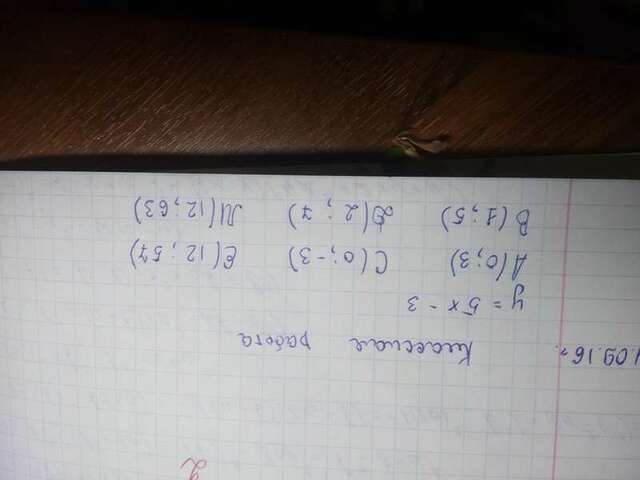 .09.16г.
Классная работа
y = 5x - 3
A(0;3) C(0;-3) E(12;57)
B(1;5) D(2;7) M(12;63)